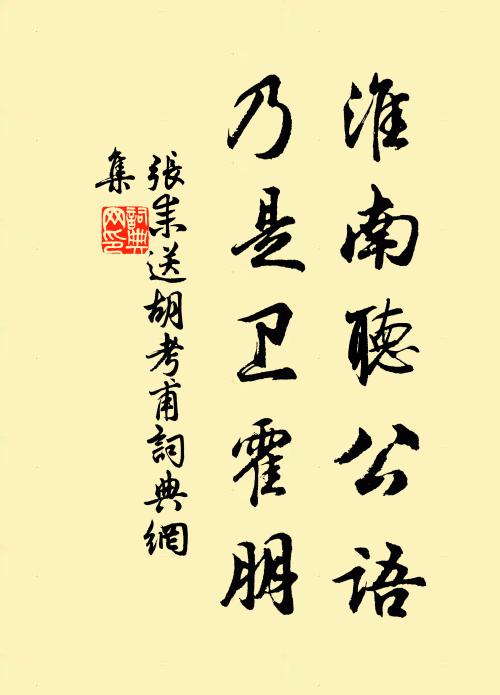 淮南聽公語
乃是卫霍朋
張耒送胡考甫詞典網
集
詞典
网印